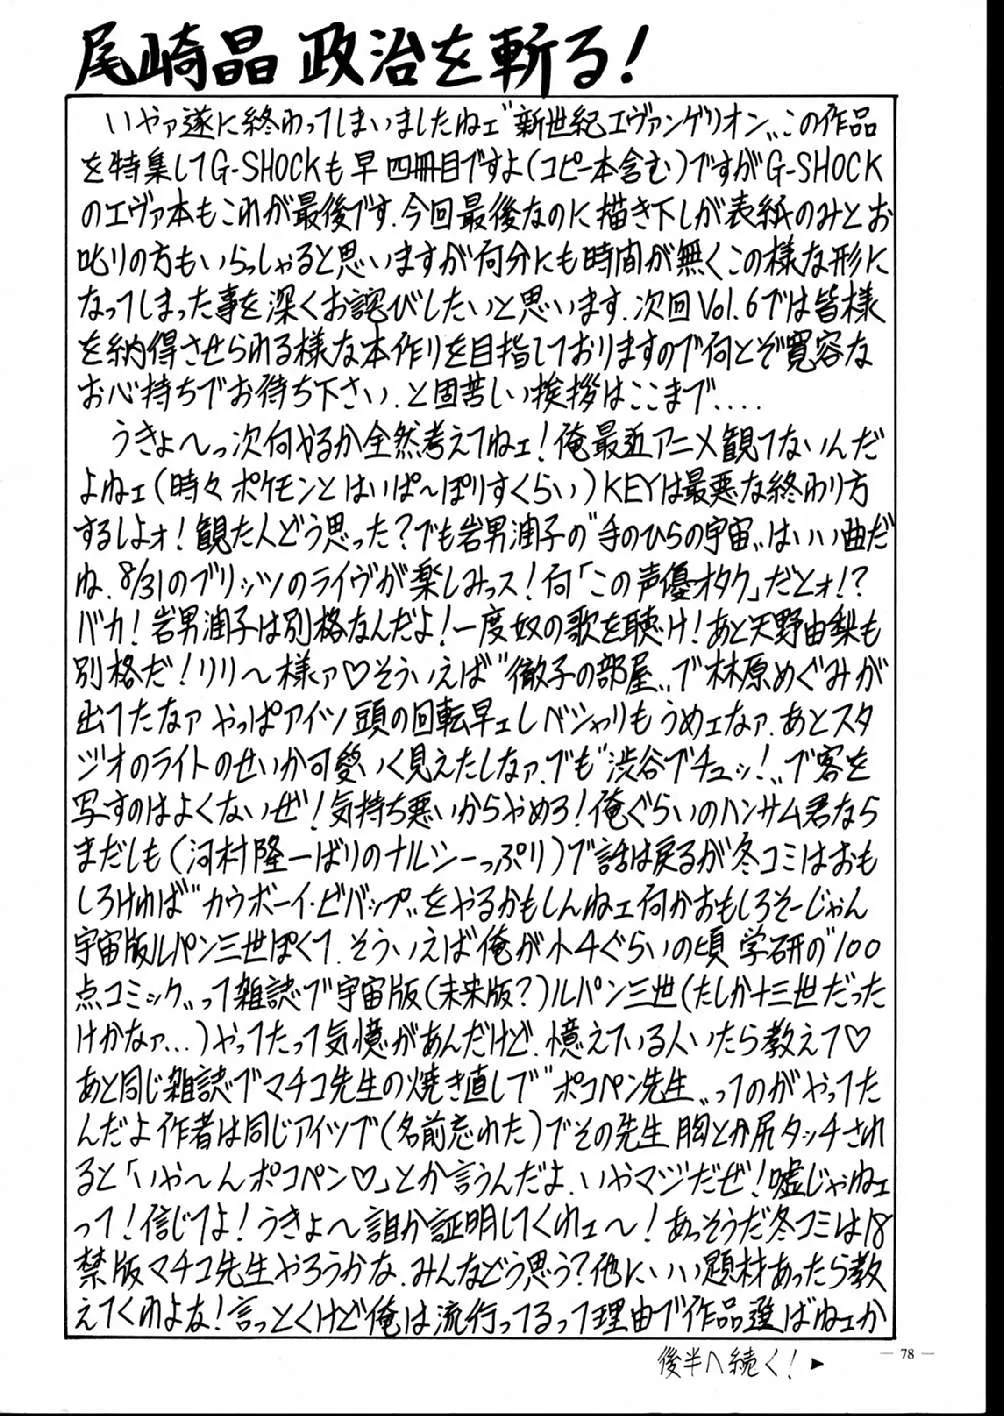 尾崎晶 政治を斬る!
いやァ遂に終わってしまいましたねェ"新世紀エヴァンゲリオン"この作品
を特集してG-SHOCKも早四冊目ですよ(コピー本含む)ですがG-SHOCK
のエヴァ本もこれが最後です.今回最後なのに描き下しが表紙のみとお
叱りの方もいらっしゃると思いますが何分にも時間が無くこの様な形に
なってしまった事を深くお詫びしたいと思います.次回Vol.6では皆様
を納得させられる様な本作りを目指しておりますので何とぞ寛容な
お心持ちでお待ち下さい.と固苦しい挨拶はここまで....
うきょ〜っ次何やるか全然考えてねェ!俺最近アニメ観てないんだ
よねェ(時々ポケモンとはいぱ〜ぽりすくらい)KEYは最悪な終わり方
するしよォ!観た人どう思った?でも岩男潤子の"手のひらの宇宙"はいい曲だ
ね.8/31のブリッツのライヴが楽しみっス!何「この声優オタク」だとォ!?
バカ!岩男潤子は別格なんだよ!一度奴の歌を聴け!あと天野由梨も
別格だ!リリ〜様ァ♡そういえば"徹子の部屋"で林原めぐみが
出てたなァ やっぱアイツ頭の回転早ェしベシャリもうめェなァ.あとスタ
ジオのライトのせいか可愛いく見えたしなァ.でも"渋谷でチュッ!"で客を
写すのはよくないぜ!気持ち悪いからやめろ!俺ぐらいのハンサム君なら
まだしも(河村隆一ばりのナルシーっぷり)で話は戻るが冬コミはおも
しろければ"カウボーイ・ビバップ"をやるかもしんねェ何かおもしろそーじゃん
宇宙版ルパン三世ぽくて.そういえば俺が小4ぐらいの頃 学研の"100
点コミック"って雑誌で宇宙版(未来版?)ルパン三世(たしか十三世だった
けかなァ...)やってたって気憶があんだけど.憶えている人いたら教えて♡
あと同じ雑誌でマチコ先生の焼き直しで"ポコペン先生"ってのがやってた
んだよ作者は同じアイツで(名前忘れた)でその先生胸とか尻タッチされ
ると「いや〜んポコペン♡」とか言うんだよ.いやマジだぜ!嘘じゃねェ
って!信じてよ!うきょ〜誰か証明してくれェ〜!あっそうだ冬コミは18
禁版マチコ先生やろうかな.みんなどう思う?他にいい題材あったら教
えてくれよな!言っとくけど俺は流行ってるって理由で作品選ばねェか
後半へ続く!▶
— 78 —